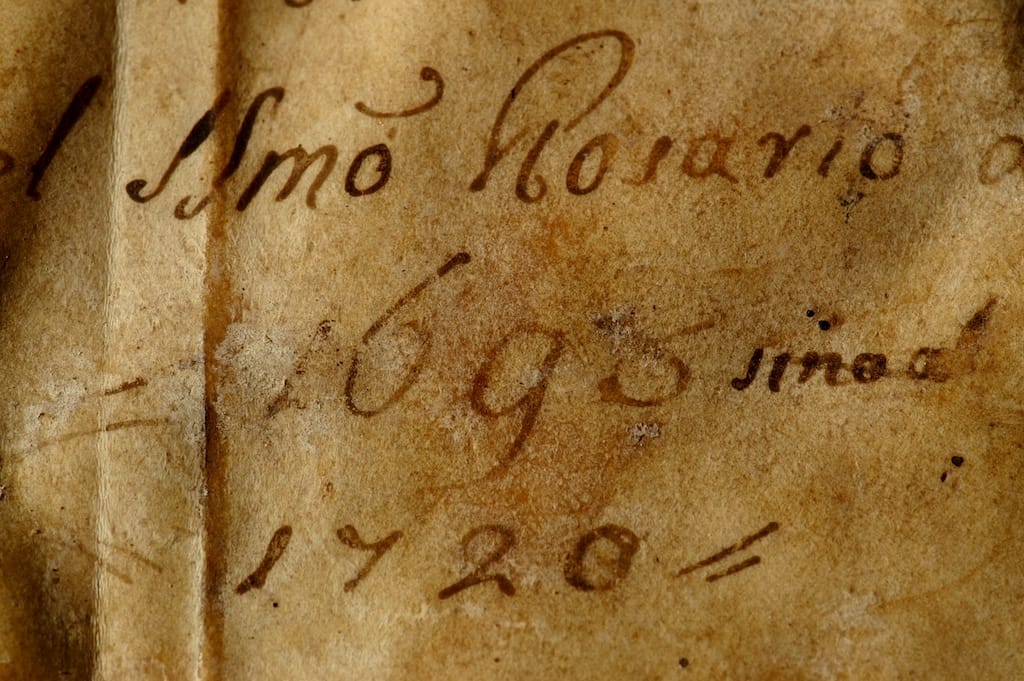 el SSmõ Rosario a
= 1695 sinoal
= 1720 =